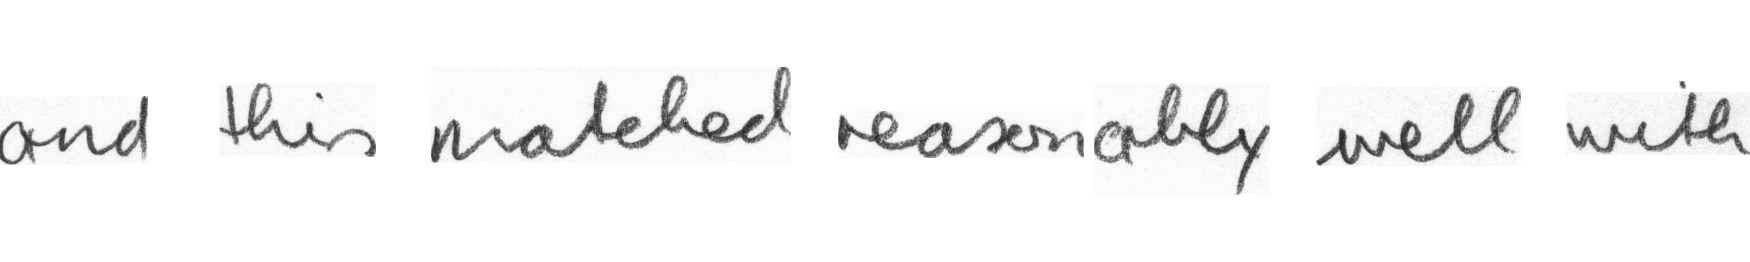 and this matched reasonably well with